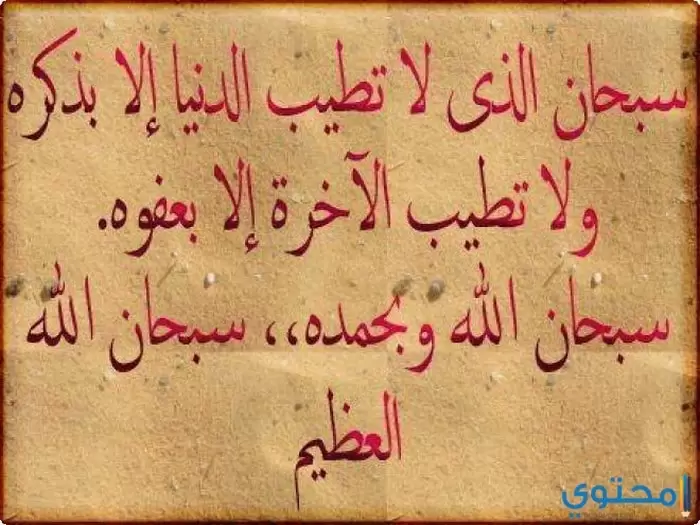 سبحان الذى لا تطيب الدنيا إلا بذكره
ولا تطيب الآخرة إلا بعفوه.
سبحان الله وبحمده،، سبحان الله
العظيم
محتوي